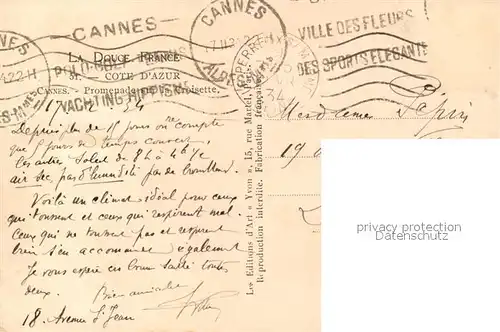 CANNES
CANNES
VILLE DES FLEURS
DES SPORTS ÉLÉGANTS
LA DOUCE FRANCE
CÔTE D'AZUR
CANNES. - Promenade de la Croisette.
YACHTING
Depuis plus de 15 jours on ne compte
que 8 jours de temps couvert,
les autres Soleil de 8h à 4h
air sec, pas d'humidité pas de brouillard
Voilà un climat idéal pour ceux
qui toussent et ceux qui respirent mal.
Ceux qui ne toussent pas et respirent
bien s'en accommodent également
Je vous espère en bonne santé toutes
deux. Bien amicales
18. Avenue St Jean
Mesdames Papin
19
Les Editions d'Art "Yvon", 15, rue Martel, Paris
Reproduction interdite. Fabrication française
privacy protection
Datenschutz